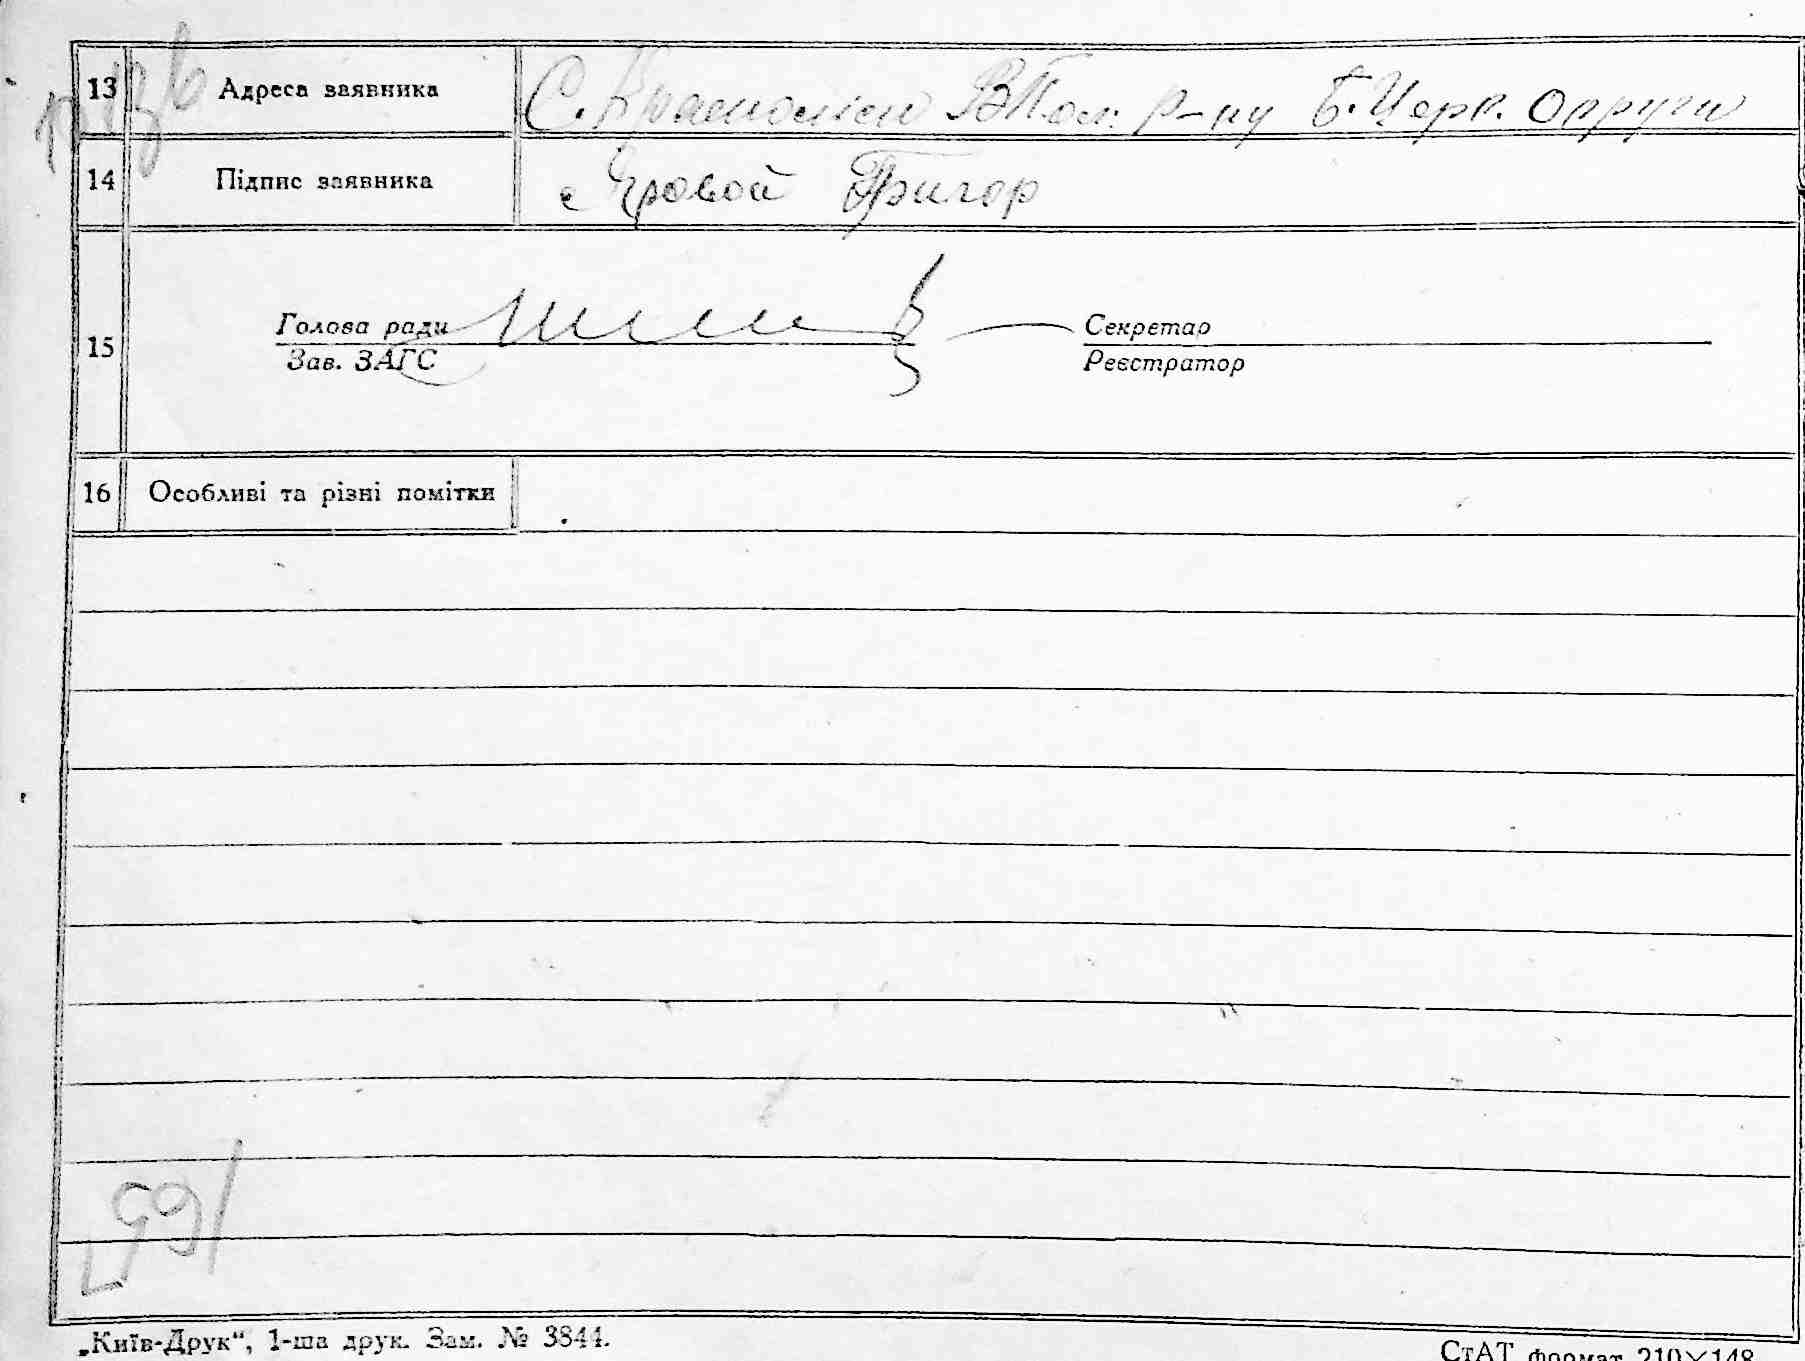 13 Адреса заявника С. Краснолісы ВПол. р-ну Б. Церк. Округи
14 Підпис заявника Яровой Григор
15 Голова ради Секретар
Зав. ЗАГС Реєстратор
16 Особливі та різні помітки
„Київ-Друк“, 1-ша друк. Зам. № 3844. СтАТ формат 210×148